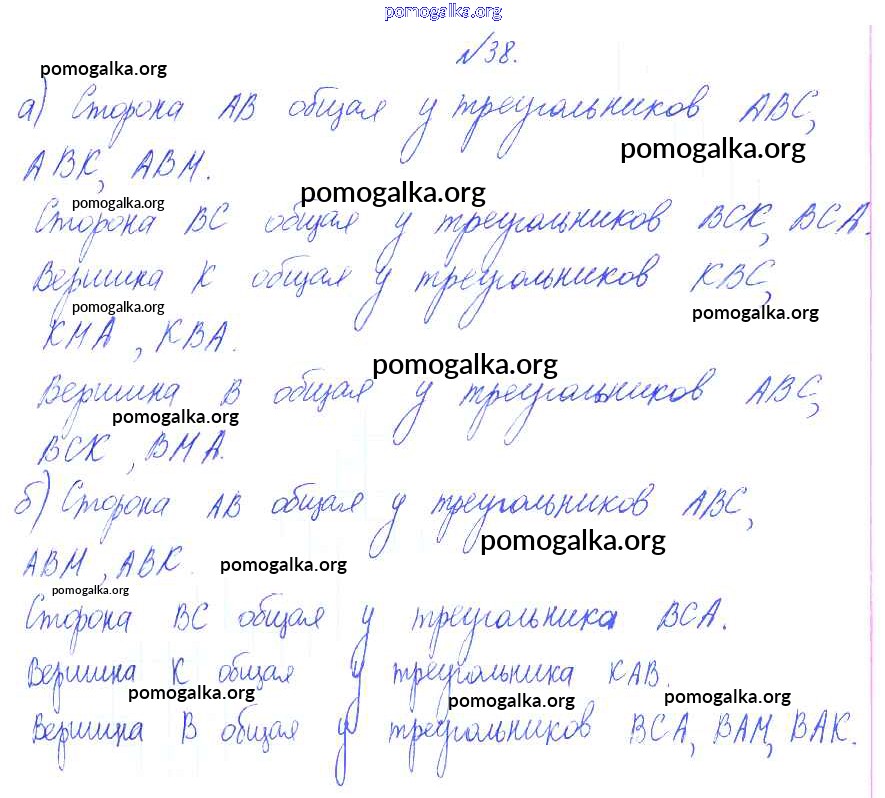 pomogalka.org
№38.
pomogalka.org
а) Сторона АВ общая у треугольников АВС,
pomogalka.org
АВК, АВМ.
pomogalka.org
pomogalka.org
Сторона ВС общая у треугольников ВСК, ВСА.
Вершина К общая у треугольников КВС,
pomogalka.org
pomogalka.org
КМА, КВА.
pomogalka.org
Вершина В общая у треугольников АВС,
pomogalka.org
ВСК, ВМА.
б) Сторона АВ общая у треугольников АВС,
pomogalka.org
АВМ, АВК.
pomogalka.org
pomogalka.org
Сторона ВС общая у треугольника ВСА.
Вершина К общая у треугольника КАВ.
pomogalka.org
pomogalka.org
pomogalka.org
Вершина В общая у треугольников ВСА, ВАМ, ВАК.